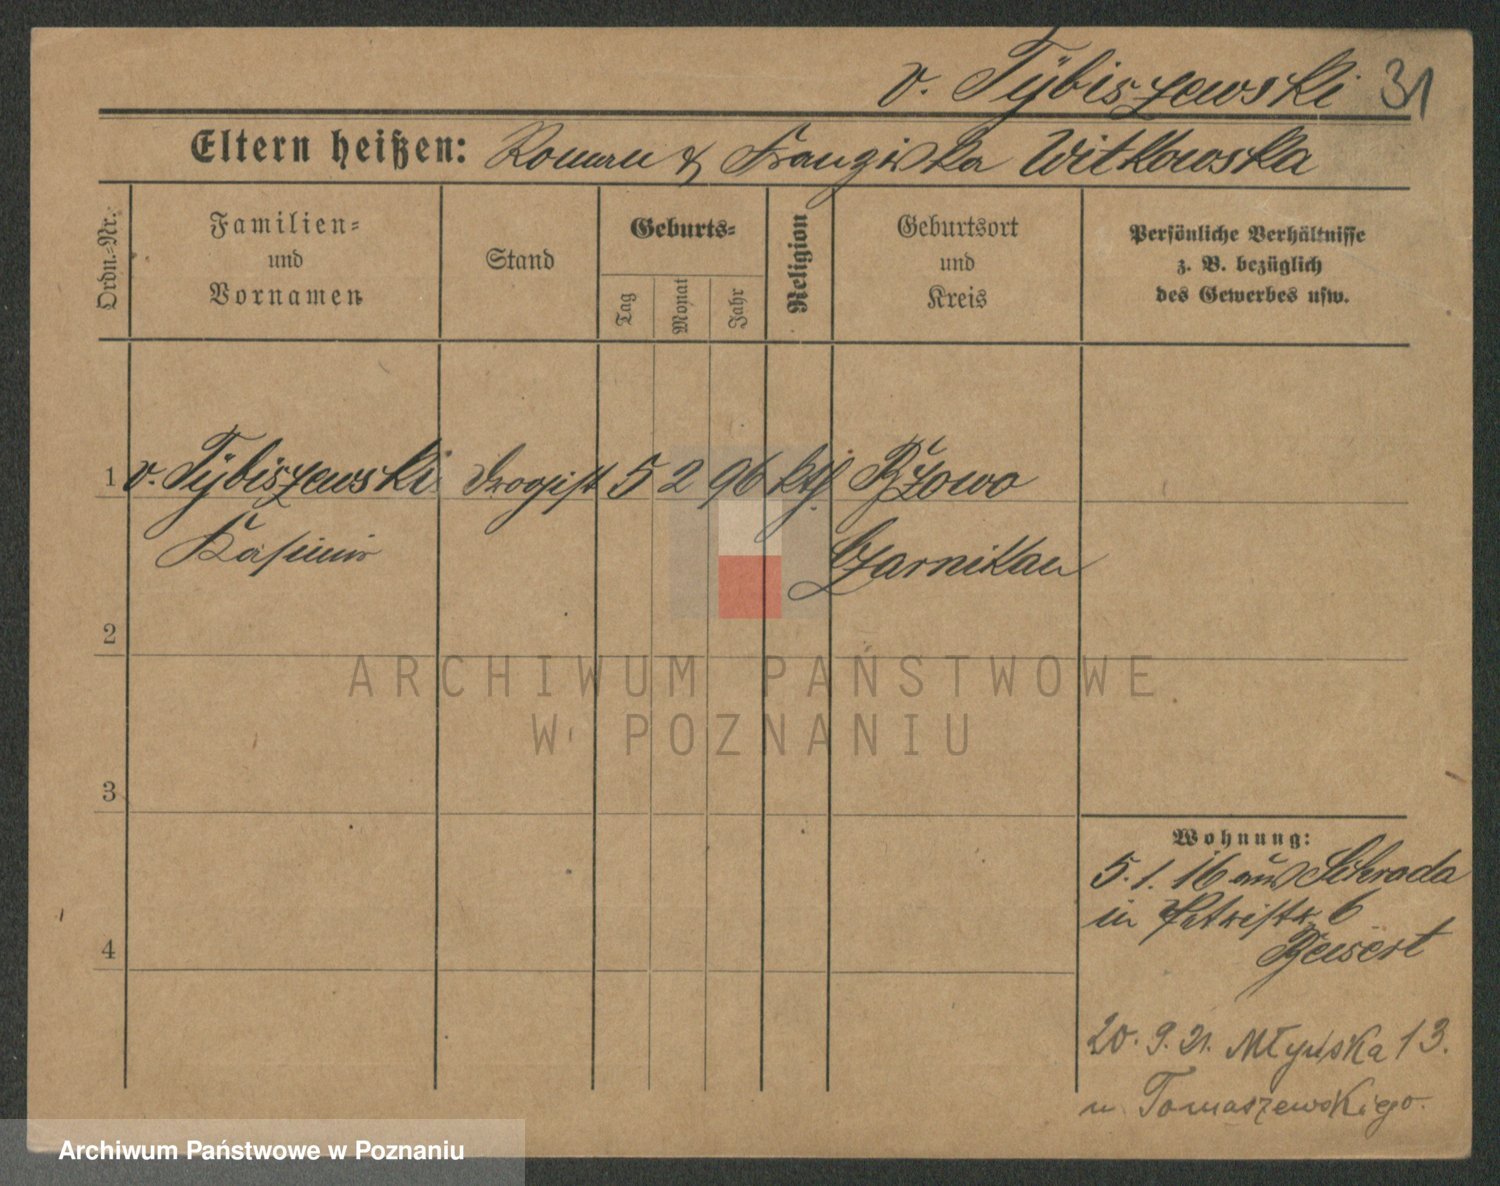 v. Tÿbiszewski 31
Eltern heißen: Roman & Franziska Witkowska
Ordn.-Nr.
Familien-
und
Vornamen
Stand
Geburts-
Tag
Monat
Jahr
Religion
Geburtsort
und
Kreis
Persönliche Verhältnisse
z. B. bezüglich
des Gewerbes usw.
1 v. Tÿbiszewski Drogist 5 2 96 kth Bzowo
Kasimir Czarnikau
2
3
4
Wohnung:
5.1.16 aus Schroda
in Petristr. 6
20.9.21. Młyńska 13.
u Tomaszewskiego.
ARCHIWUM PAŃSTWOWE
W POZNANIU
Archiwum Państwowe w Poznaniu